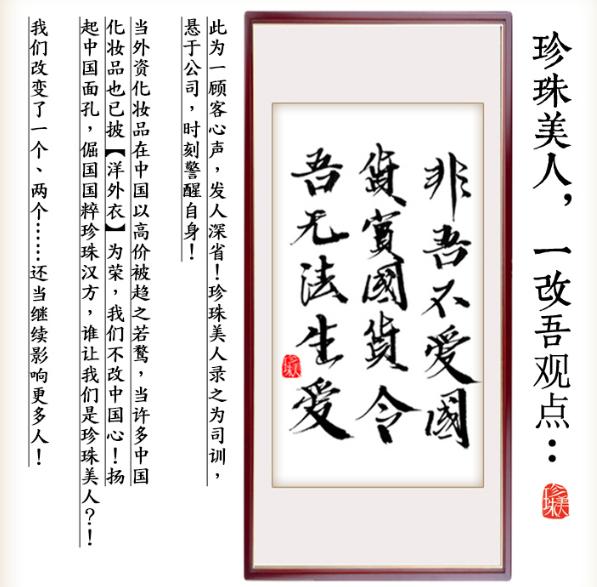 珍珠美人，一改吾观点：
非吾不愛國
貨實國貨令
吾无法生愛
此为一顾客心声，发人深省！珍珠美人录之为司训，
悬于公司，时刻警醒自身！
当外资化妆品在中国以高价被趋之若鹜，当许多中国
化妆品也已披【洋外衣】为荣，我们不改中国心！扬
起中国面孔，倔国国粹珍珠汉方，谁让我们是珍珠美人？！
我们改变了一个、两个……还当继续影响更多人！